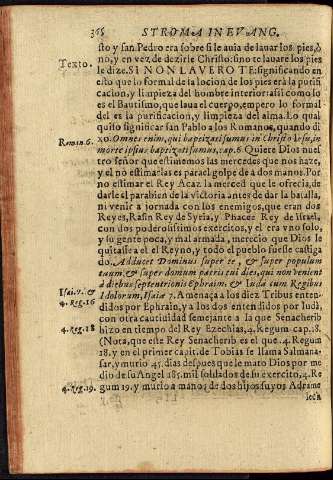 366 STROMA IN EVANG.
sto y san Pedro era sobre si le auia de lauar los pies, ò
no, y en vez de dezirle Christo: sino te lauare los pies
le dize. SI NON LAVERO TE: significando en
esto que lo formal de la locion de los pies era la purifi
cacion, y limpieza del hombre interior: assi como lo
es el Bautismo, que laua el cuerpo, empero lo formal
del es la purificacion, y limpieza del alma. Lo qual
quiso significar san Pablo a los Romanos, quando di
xo. Omnes enim, qui baptizati sumus in Christo Iesu, in
morte ipsius baptizati sumus, cap. 6 Quiere Dios nues
tro señor que estimemos las mercedes que nos haze,
y el no estimarlas es parael golpe de a dos manos. Por
no estimar el Rey Acaz la merced que le ofrecia, de
darle al parabien de la victoria antes de dar la batalla,
ni venir a jornada con los enemigos, que eran dos
Reyes, Rasin Rey de Syria, y Phacee Rey de Israel,
con dos poderosissimos exercitos, y el era vno solo,
y su gente poca, y mal armada, merecio que Dios le
quitasse a el el Reyno, y todo el pueblo fuesse castiga
do. Adducet Dominus super te, & super populum
tuum, & super domum patris tui dies, qui non venerunt
à diebus septentrionis Ephraim, & Iuda cum Regibus
Idolorum, Isaiæ 7. Amenaça a los diez Tribus enten-
didos por Ephrain, y a los dos entendidos por Iudà,
con otra cautiuidad semejante a la que Senacherib
hizo en tiempo del Rey Ezechias, 4. Regum cap. 18.
(Nota, que este Rey Senacherib es el que .4. Regum
18. y en el primer capit. de Tobias se llama Salmana-
sar, y murio 45. dias despues que le mato Dios por me
dio de su Angel 185. mil soldados de su exercito, 4. Re
gum 19. y murio a manos de dos hijos suyos Adrame
lech
Texto.
Roman. 6.
Isai. 7. &
4. Reg. 16
4. Reg. 18
4. Reg. 19.